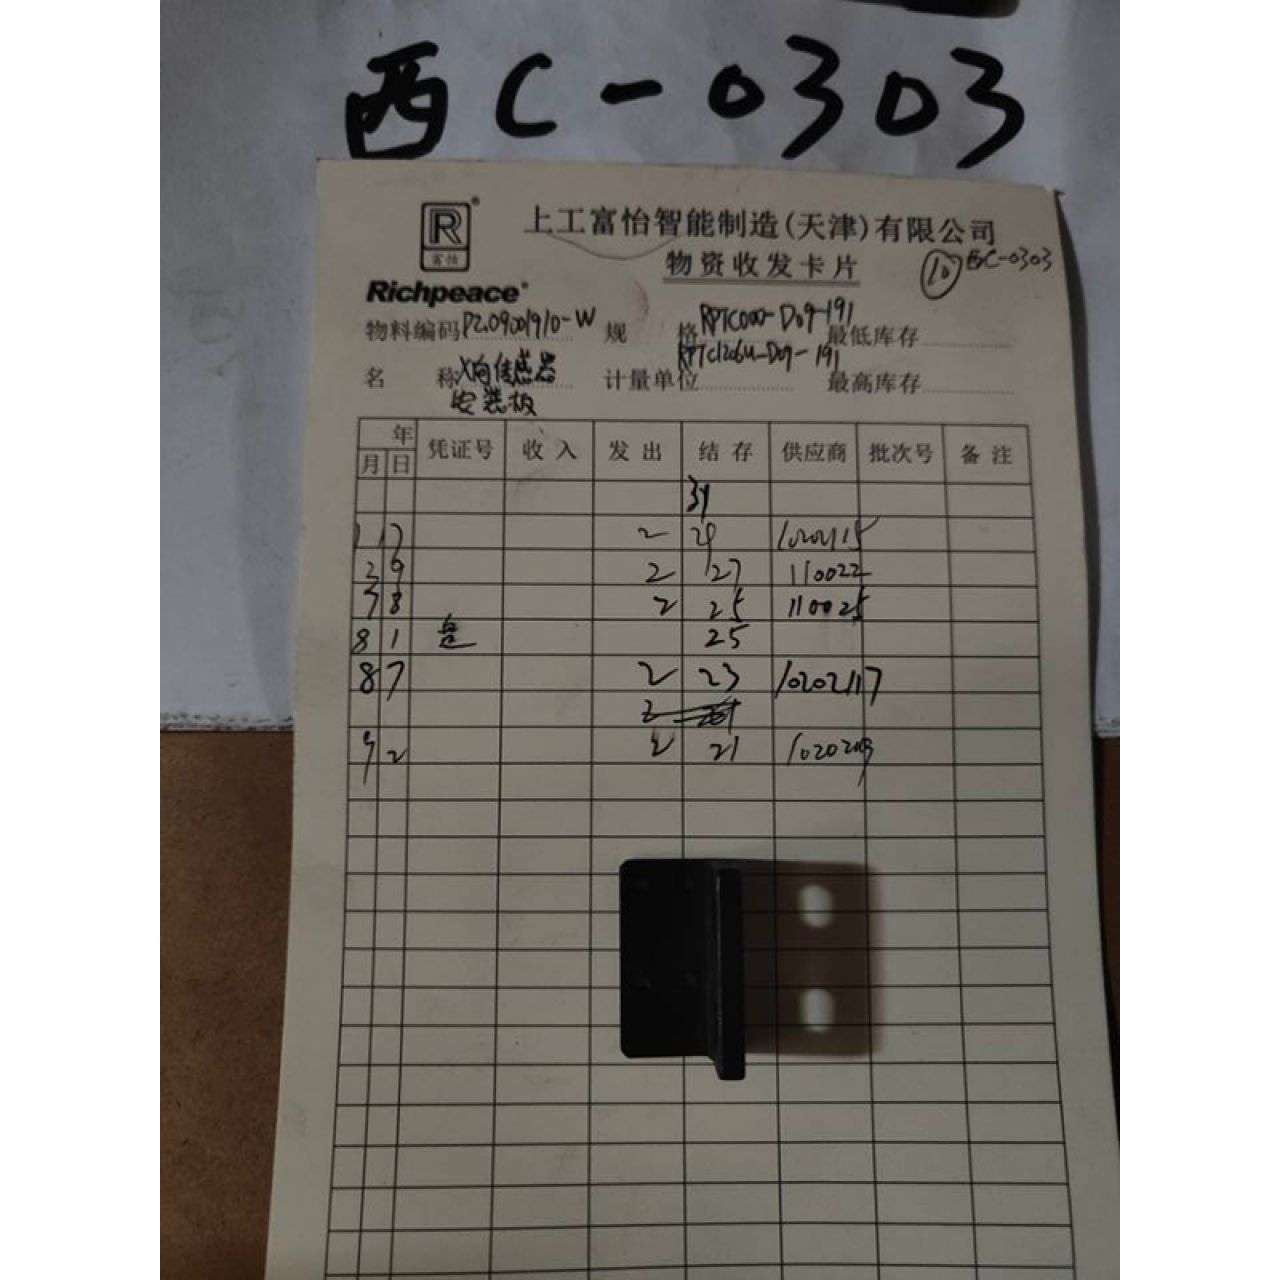 西C-0303
R
富怡
上工富怡智能制造(天津)有限公司
物资收发卡片
⑩ 西C-0303
Richpeace
物料编码 PZ09001910-W 规格 RPTC000-D09-191 最低库存
名称 X向传感器 计量单位 RPTC1206U-D09-191 最高库存
安装板
年
月 日 凭证号 收入 发出 结存 供应商 批次号 备注
31
1 17 2 29 1020215
3 9 2 27 110022
7 8 2 25 110025
8 1 盘 25
8 7 2 23 10202117
2
9 2 2 21 1020209